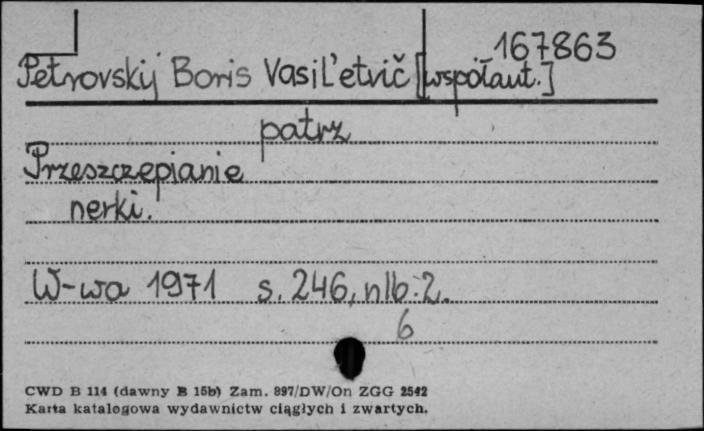 167863
Petrovskij Boris Vasil'etvič [współaut.]
patrz
Przeszczepianie
nerki.
W-wa 1971 s. 246, nlb. 2.
6
CWD B 114 (dawny B 15b) Zam. 897/DW/On ZGG 2542
Karta katalogowa wydawnictw ciągłych i zwartych.